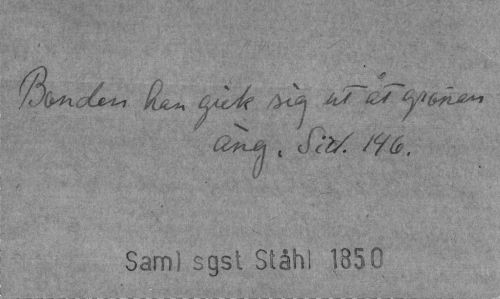 Bonden han gick sig ut åt grönan
äng. Sid. 146.
Saml sgst Ståhl 1850